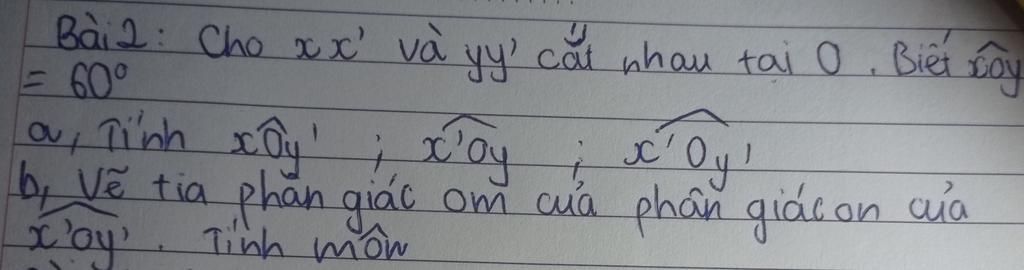 Bài 2: Cho xx' và yy' cắt nhau tai O. Biết xÔy
= 60°
a, Tính xÔy' ; x'Oy ; x'Oy'
b, Vẽ tia phân giác om của phân giác on của
x'oy'. Tính môn